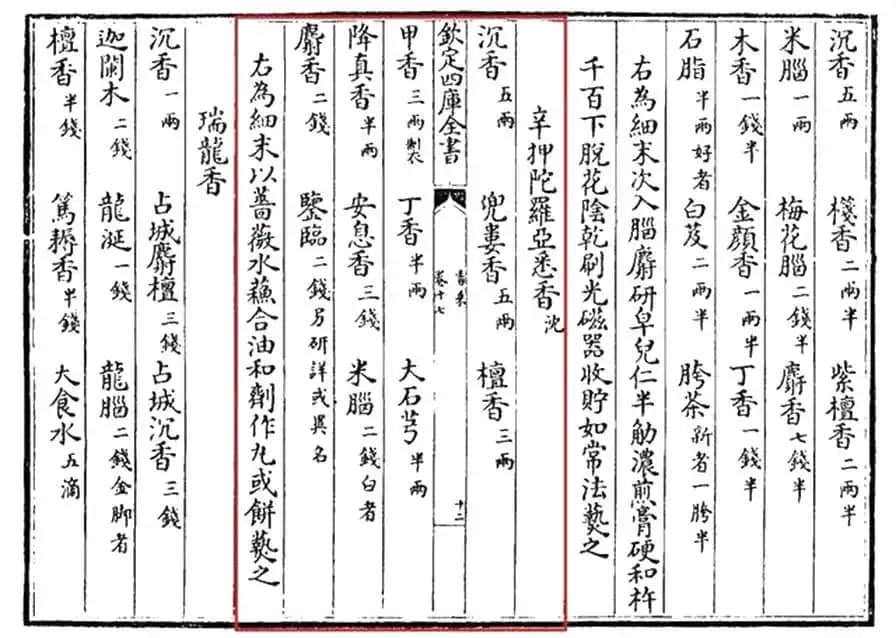 沉香五兩　棧香二兩半　紫檀香二兩半
米腦一兩　梅花腦二錢半　麝香七錢半
木香一錢半　金顔香一兩半　丁香一錢半
石脂半兩好者　白芨二兩半　胯茶新者一胯半
右為細末次入腦麝研皁兒仁半觔濃煎膏硬和杵
千百下脫花陰乾刷光磁器收貯如常法爇之
辛押陀羅亞悉香沈
沉香五兩　兜婁香五兩　檀香三兩
欽定四庫全書　香乘卷十七　十二
甲香三兩製　丁香半兩　大石芎半兩
降真香半兩　安息香三錢　米腦二錢白者
麝香二錢　鑒臨二錢另研詳或異名
右為細末以薔薇水蘇合油和劑作丸或餅爇之
瑞龍香
沉香一兩　占城麝檀三錢　占城沉香三錢
迦闌木二錢　龍涎一錢　龍腦二錢金脚者
檀香半錢　篤耨香半錢　大食水五滴